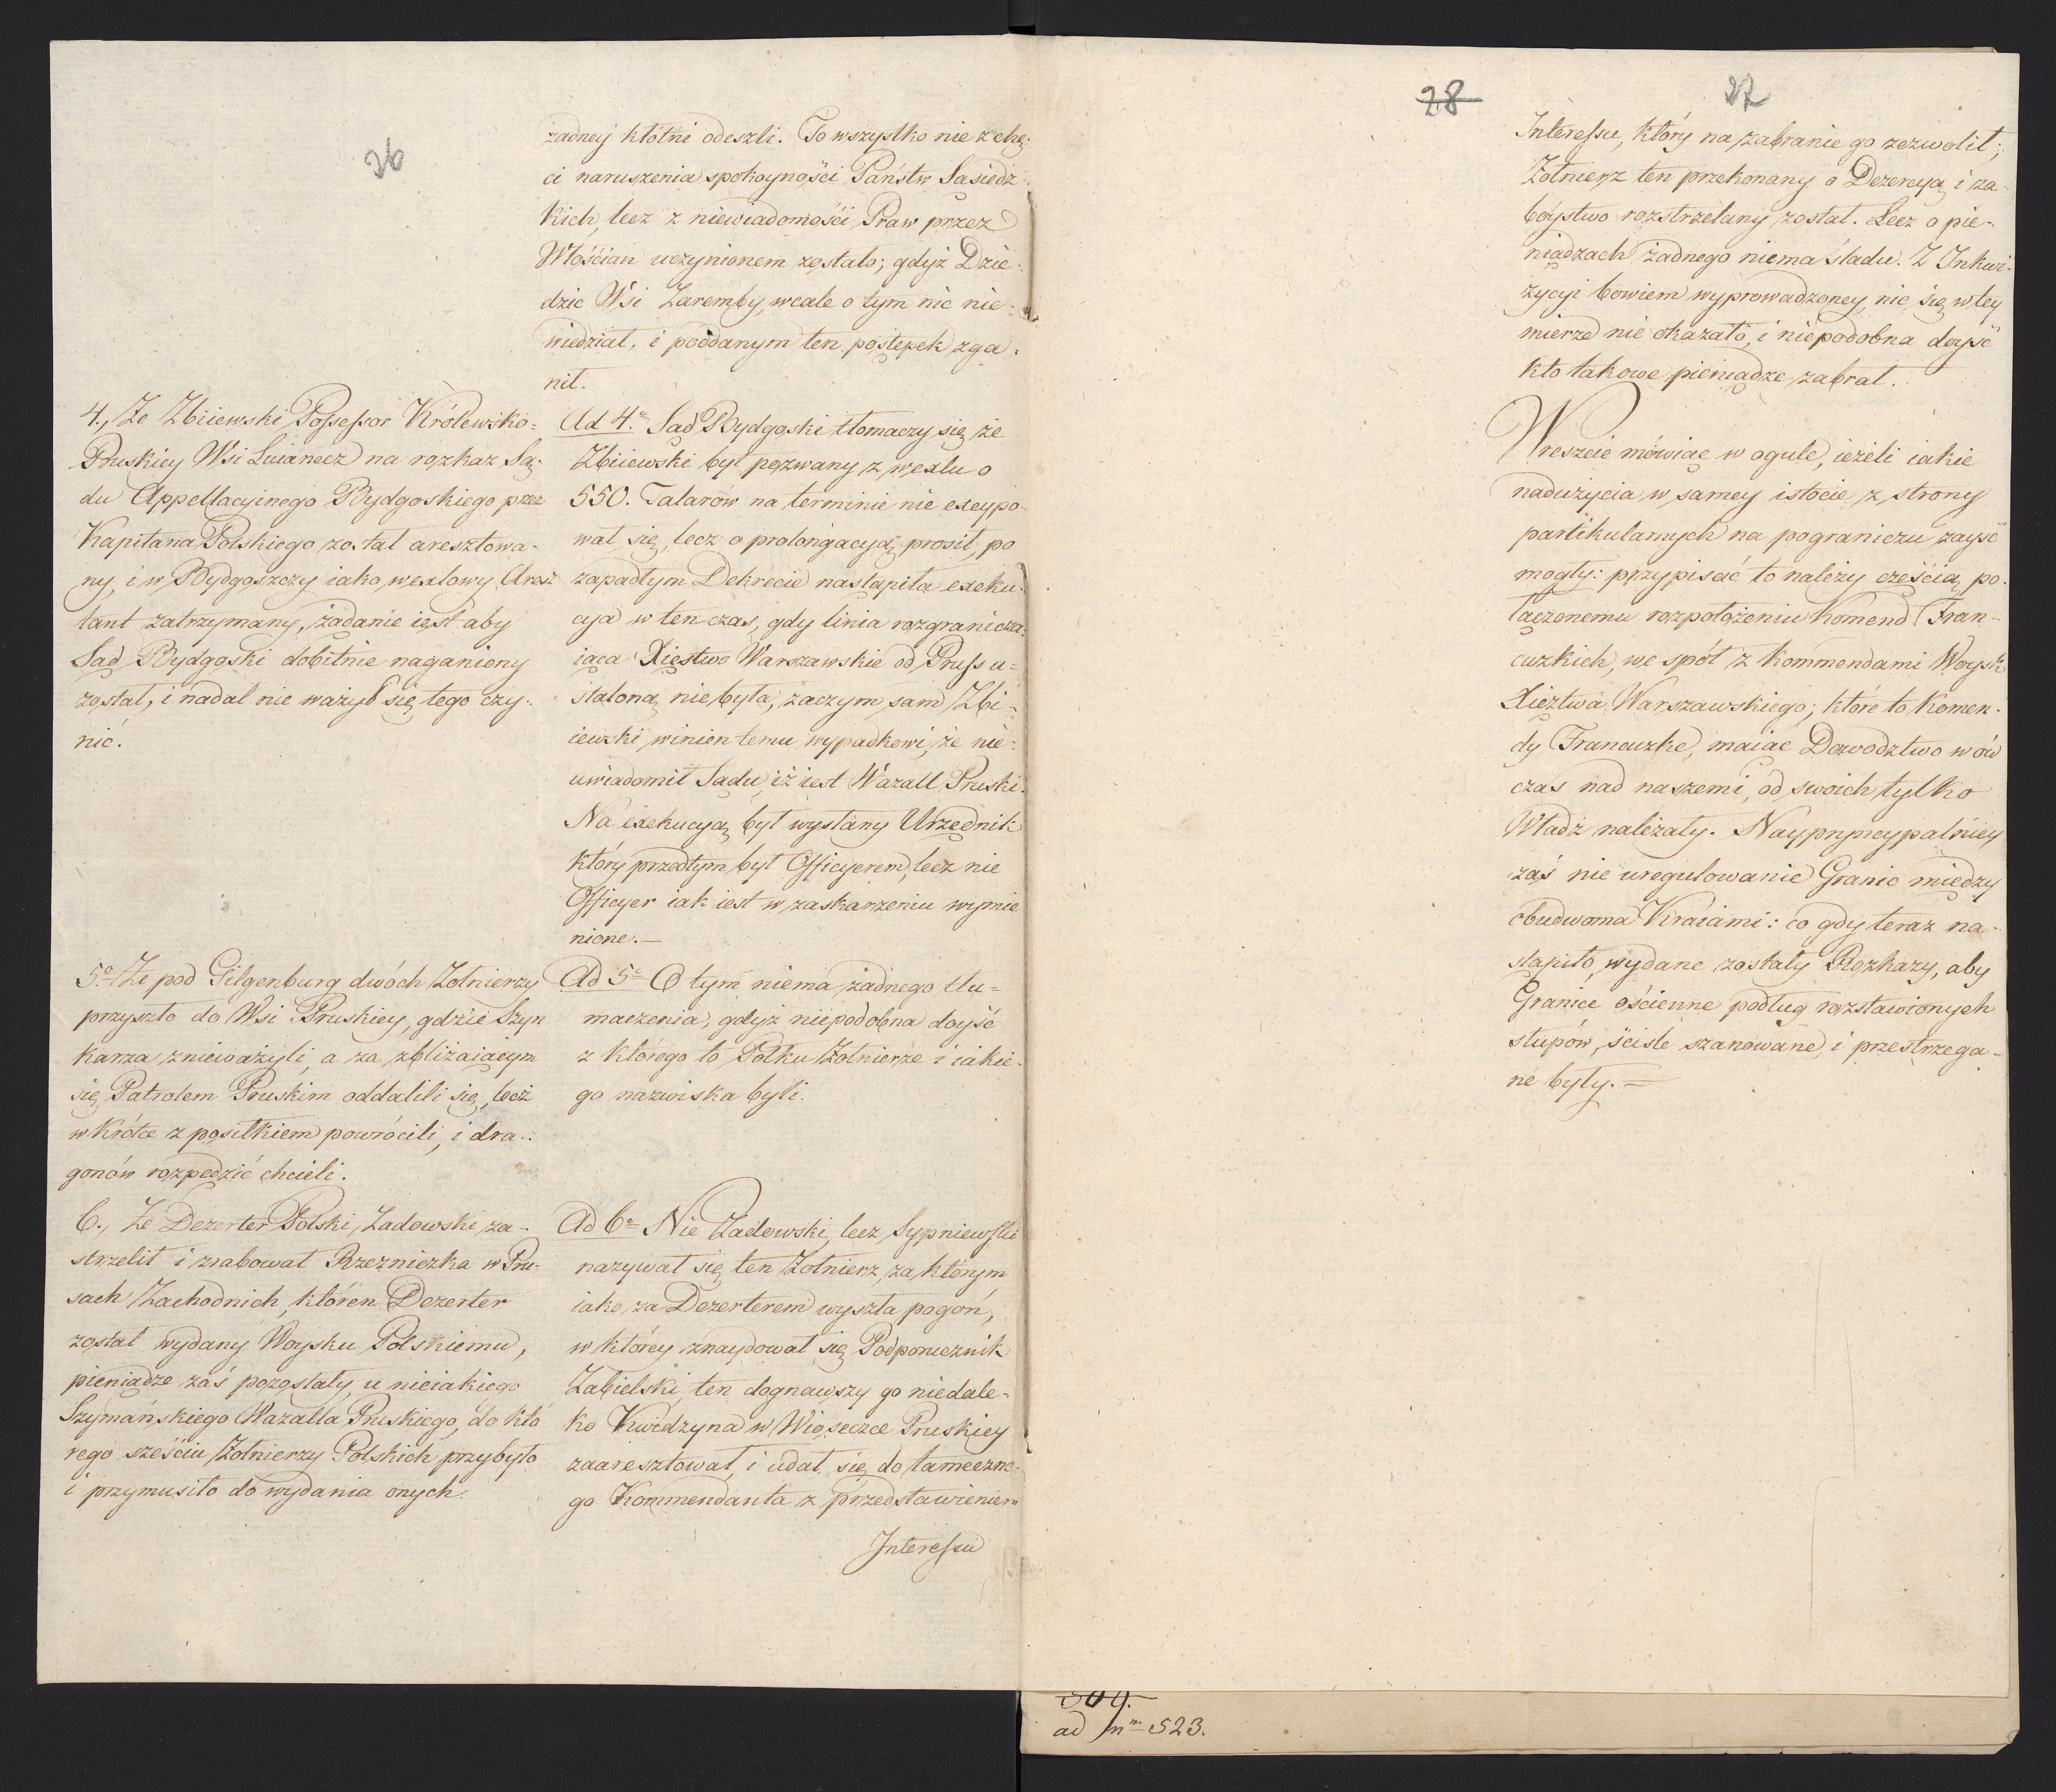 26
żadney kłótni odeszli. To wszystko nie z chę-
ci naruszenia spokoyności Państw Sąsiedz-
kich, lecz z niewiadomości Praw przez
Włościan uczynionem zostało; gdyż Dzie-
dzic Wsi Zaremby, wcale o tym nic nie-
wiedział, i poddanym ten postępek zga-
nił.
4., Że Zbiiewski Possessor Królewsko-
Pruskiey Wsi Luianecz na rozkaz Są-
du Appellacyinego Bydgoskiego przez
Kapitana Polskiego został aresztowa-
ny, i w Bydgoszczy iako wexlowy Aresz
tant zatrzymany, żądanie iest aby
Sąd Bydgoski dobitnie naganiony
został, i nadal nie ważył się tego czy-
nić.
Ad 4e Sąd Bydgoski tłomaczy się że
Zbiiewski był pozwany z wexlu o
550. Talarów na terminie nie excypo-
wał się, lecz o prolongacyą prosił, po
zapadłym Dekrecie nastąpiła exeku-
cya w ten czas, gdy linia rozgranicza-
iąca Xięstwo Warszawskie od Pruss u-
staloną nie była, zaczym sam Zbi-
iewski winien temu wypadkowi, że nie-
uwiadomił Sądu, iż iest Wazall Pruski.
Na exekucyą był wysłany Urzędnik
który przedtym był Officyerem, lecz nie
Officyer iak iest w zaskarzeniu wymie
nione.—
5e Że pod Gilgenburg dwóch Żołnierzy
przyszło do Wsi Pruskiey, gdzie Szyn
karza znieważyli, a za zbliżaiącym
się Patrolem Pruskim oddalili się, lecz
wkrótce z posiłkiem powrócili, i dra-
gonów rozpędzić chcieli.
Ad 5e O tym niema żadnego tłu-
maczenia, gdyż niepodobna doyść
z którego to Połku Żołnierze i iakie-
go nazwiska byli.
6., Że Dezerter Polski, Zadowski za-
strzelił i zrabował Rzezniczka w Pru-
sach Zachodnich, któren Dezerter
został wydany Woysku Polskiemu,
pieniądze zaś pozostały u nieiakiego
Szymańskiego Wazalla Pruskiego, do któ
rego sześciu Żołnierzy Polskich przybyło
i przymusiło do wydania onych.
Ad 6e Nie Zadowski, lecz Sypniewski
nazywał się ten Żołnierz, za którym
iako za Dezerterem wyszła pogoń,
w którey znaydował się Podporucznik
Zabielski, ten dognawszy go niedale-
ko Kwidzyna w Wioseczce Pruskiey
zaaresztował, i udał się do tameczne-
go Kommendanta z przedstawieniem
Interessu
28
27
Interessu, który na zabranie go zezwolił;
Żołnierz ten przekonany o Dezercyą i za-
bóystwo rozstrzelany został. Lecz o pie-
niądzach żadnego niema śladu. Z Inkwi-
zycyi bowiem wyprowadzoney, nic się w tey
mierze nie okazało, i niepodobna doyść
kto takowe pieniądze zabrał.
Wreszcie mówiąc w ogule, ieżeli iakie
nadużycia w samey istocie z strony
partikularnych na pograniczu zayść
mogły: przypisać to należy częścią po-
łączonemu rozpołożeniu Komend Fran-
cuzkich, we spół z Kommendami Woysk
Xięztwa Warszawskiego; które to Komen-
dy Francuzkie, maiąc Dowodztwo w ów
czas nad naszemi, od swoich tylko
Władz należały. Naypryncypalniey
zaś nie uregulowanie Granic między
obudwoma Kraiami: co gdy teraz na-
stąpiło, wydane zostały Rozkazy, aby
Granice ościenne podług rozstawionych
słupów, ściśle szanowane, i przestrzega-
ne były.=
509.
ad Nm 523.